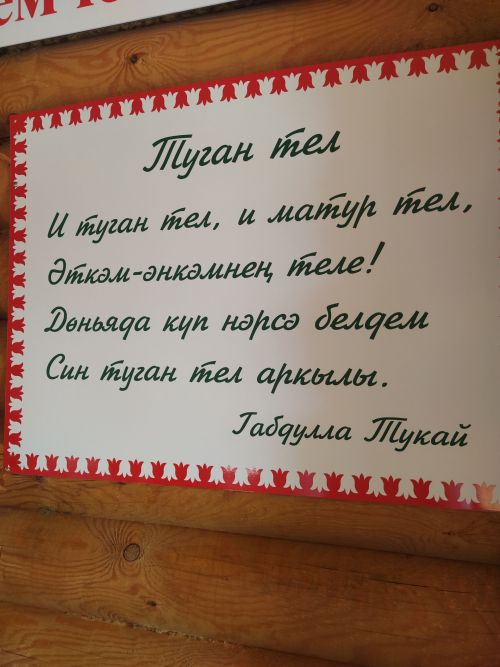 Туган тел
И туган тел, и матур тел,
Әткәм-әнкәмнең теле!
Дөньяда күп нәрсә белдем
Син туган тел аркылы.
Габдулла Тукай